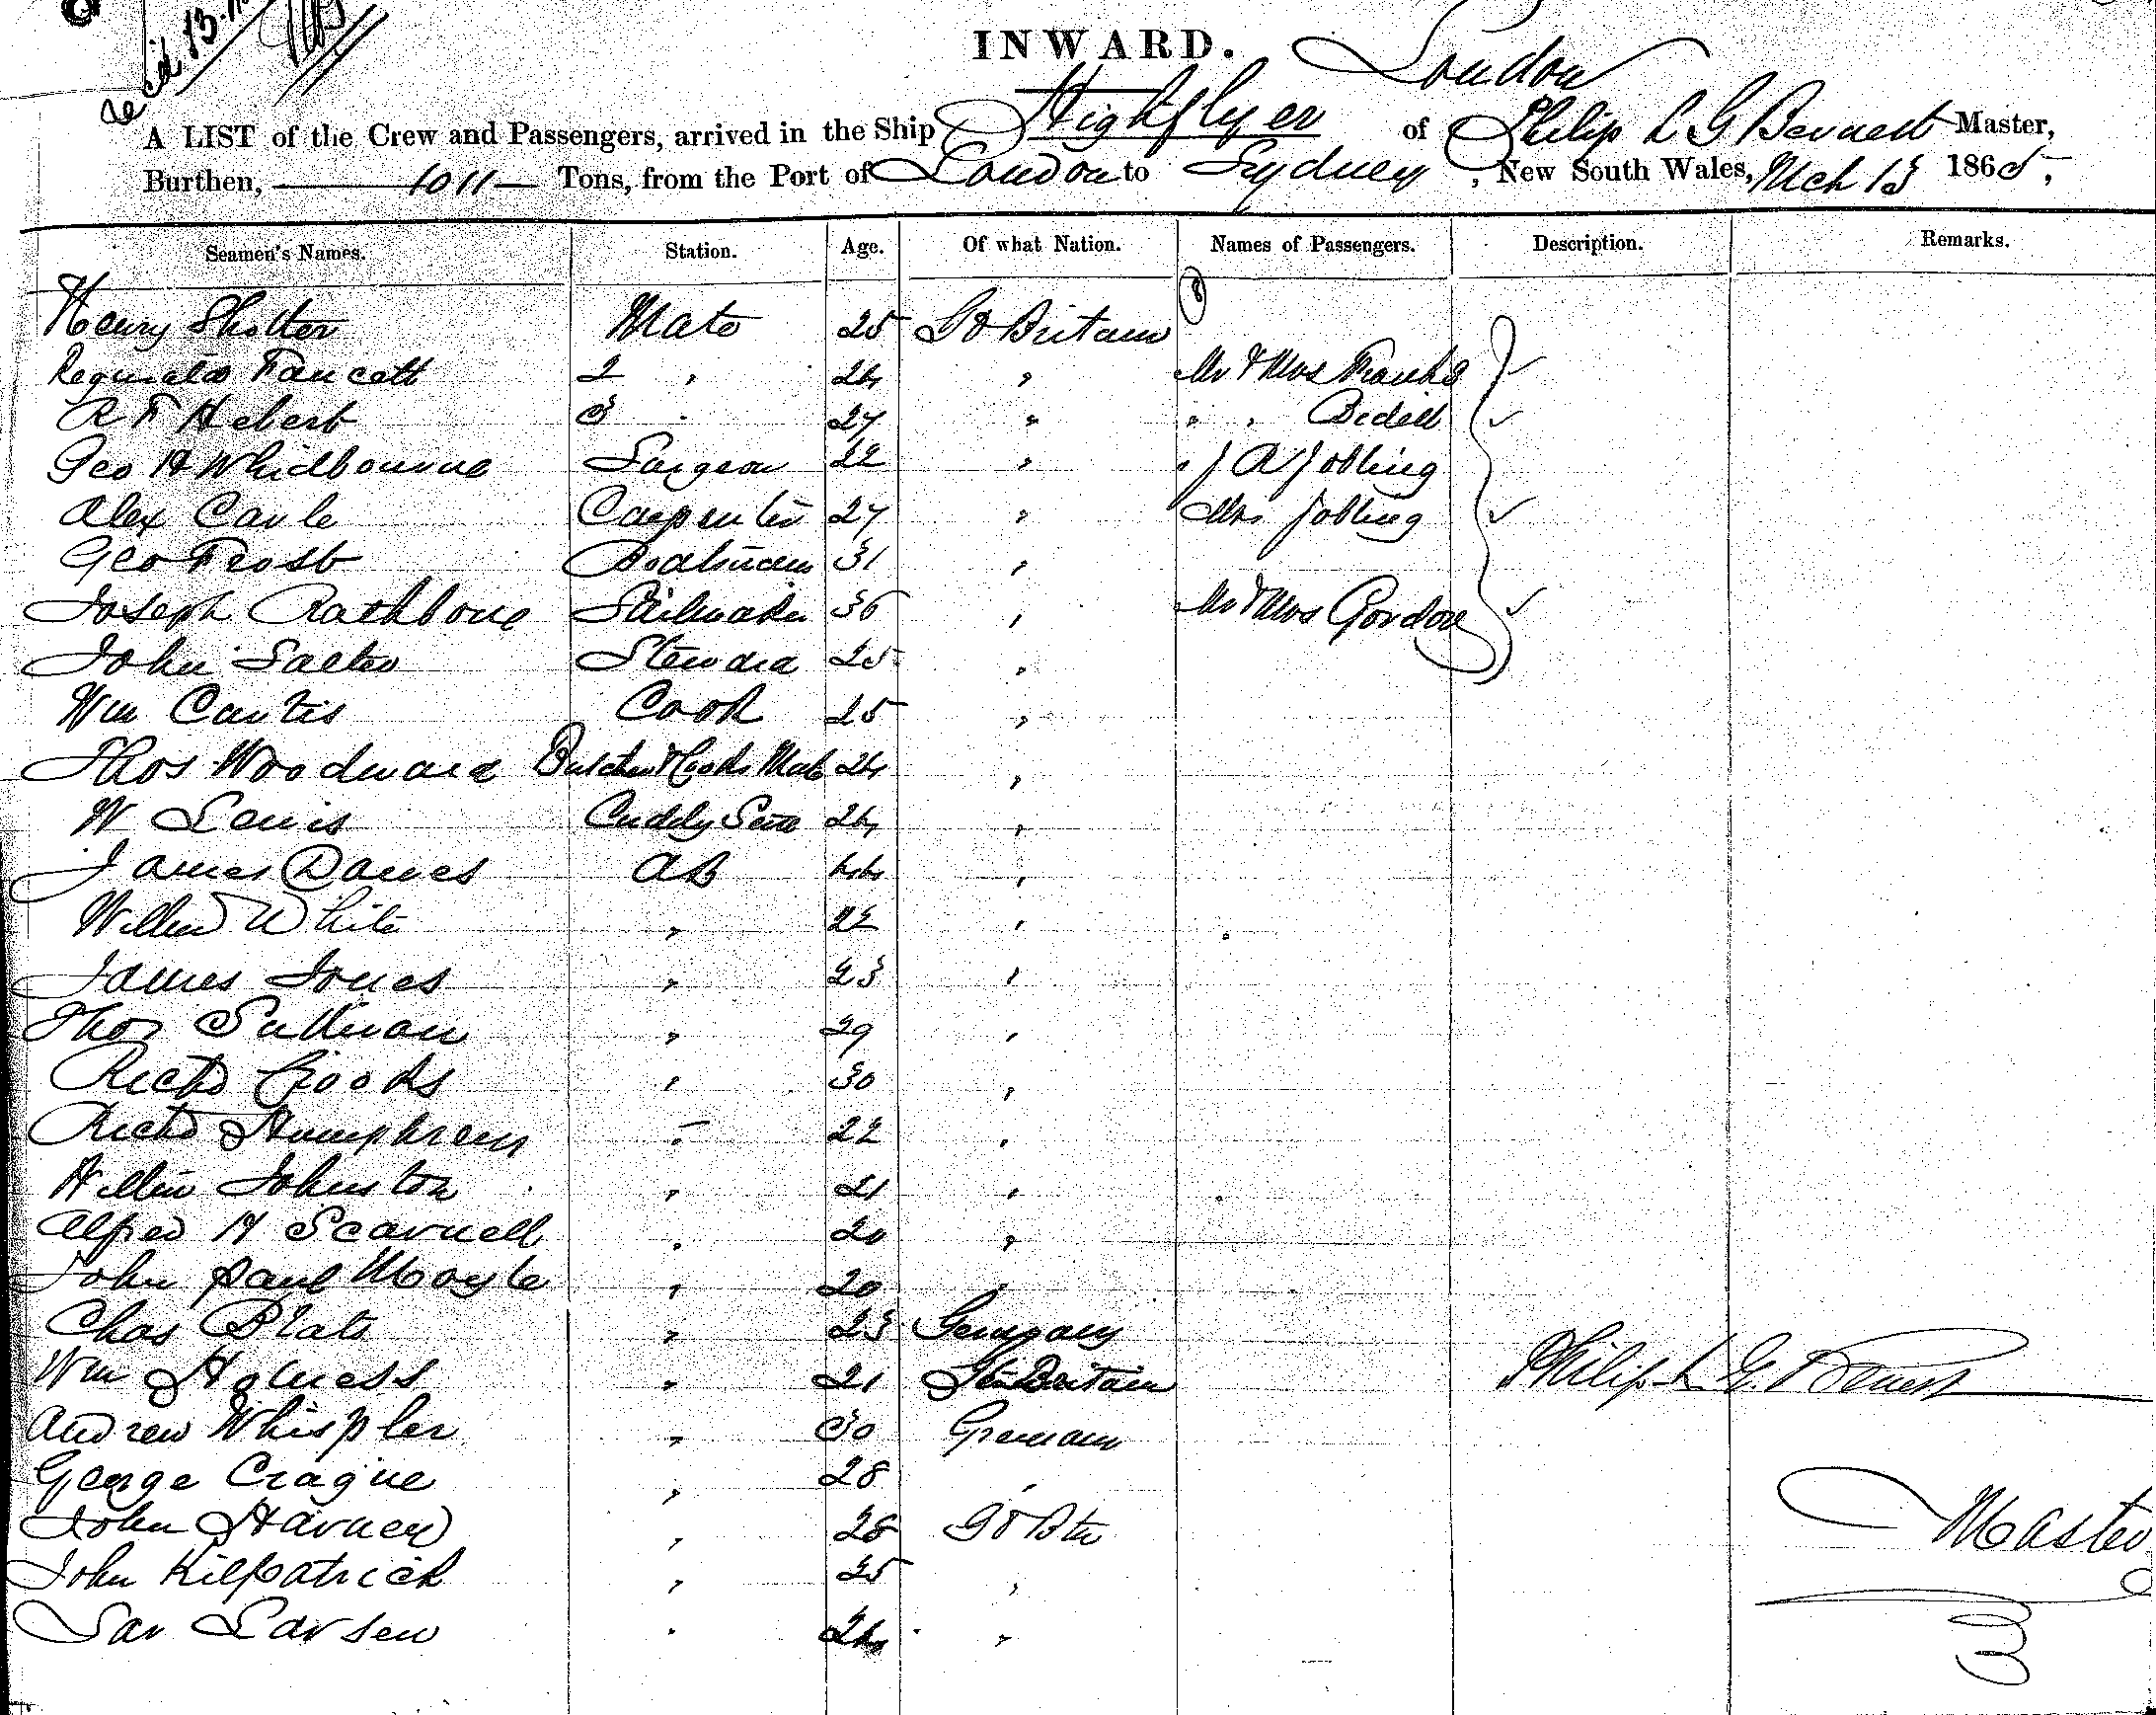 INWARD.
London
A LIST of the Crew and Passengers, arrived in the Ship Highflyer of Philip L G Bennett Master,
Burthen, 1011 Tons, from the Port of London to Sydney, New South Wales, Mch 13 1865,
Seamen's Names. Station. Age. Of what Nation. Names of Passengers. Description. Remarks.
Henry Shotter Mate 25 Gt Britain
Reginald Fancett 2 " 24 " Mr & Mrs Franks
R F Hebert 3 " 27 " " " Bedell
Geo H Whidbourne Surgeon 22 " " J A Jobling
Alex Caule Carpenter 27 " Mrs Jobling
Geo Frost Boatswain 31 "
Joseph Rathbone Sailmaker 36 " Mr & Mrs Gordon
John Salter Steward 25 "
Wm Cantis Cook 25 "
Thos Woodward Butcher & Cooks Mate 24 "
W Lewis Cuddy Servt 24 "
James Davies AB 44 "
Willm White " 22 "
James Jones " 23 "
Thos Sullivan " 29 "
Richd Crooks " 30 "
Richd Humphreys " 22 "
Johnston " 21 "
Alfred H Scarnell " 20 "
John Paul Moyle " 20 "
Chas Plats " 23 Germany
Wm Holness " 21 Gt Britain
Andrew Whispler " 30 German
George Crague " 28 "
John Harney " 28 Gt Btn
John Kilpatrick " 25 "
Lar Larsen " 24 "
Philip L G. Bennett
Master